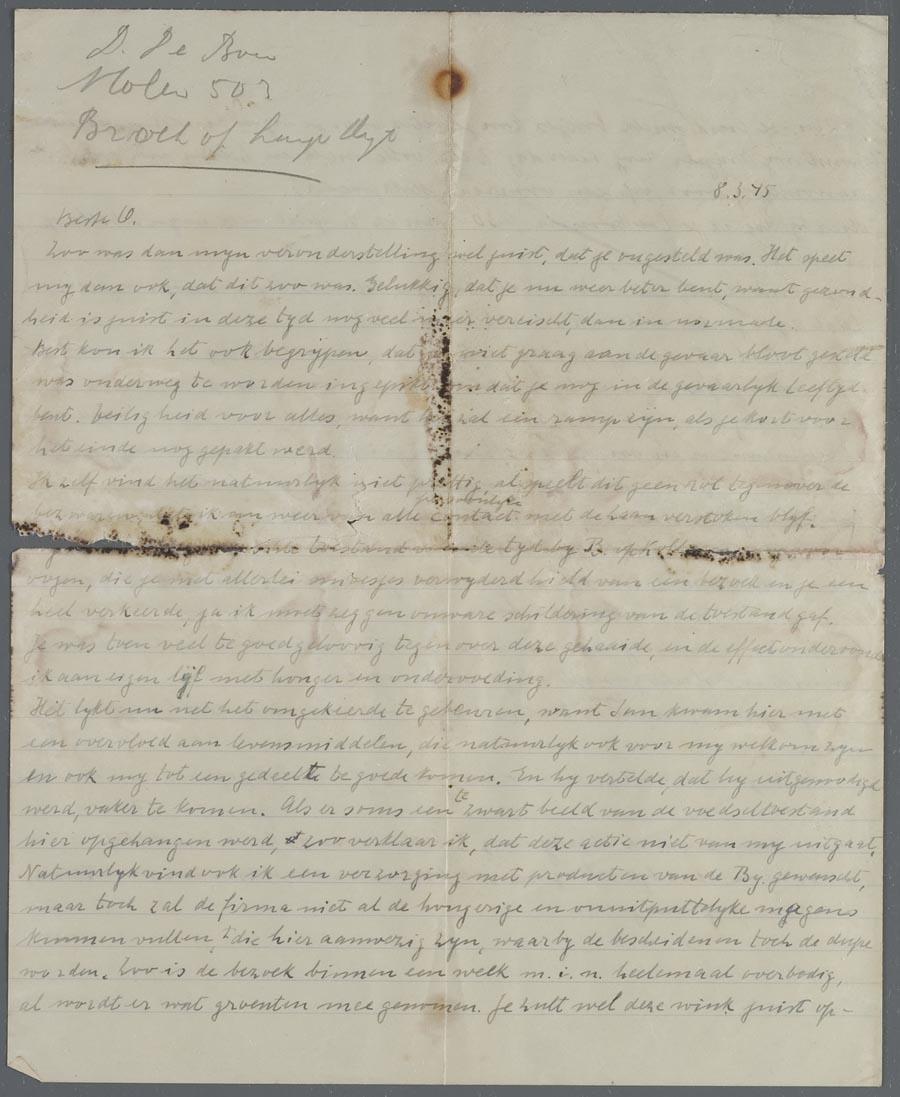 D. De Boer
Molen 503
Broek of Lange
8.3.45
Beste O.
Zoo was dan myn veronderstelling wel juist, dat je ongesteld was. Het speet
my dan ook, dat dit zoo was. Gelukkig, dat je nu weer beter bent, want gezond-
heid is juist in deze tyd nog veel meer vereischt, dan in normale.
Best kon ik het ook begrypen, dat je niet graag aan de gevaar bloot gesteld
was onderweg te worden ingepikt omdat je nog in de gevaarlyk leeftyd
bent. Veiligheid voor alles, want het zal een ramp zyn, als je kort voor
het einde nog gepakt werd.
Ik zelf vind het natuurlyk niet prettig al speelt dit geen rol tegenover de
bezwaren, ik nu weer van alle persoonlyke contact met de verstoken blyf.
toestand tyd by B. op
oogen, die je met allerlei smoesjes verwyderd hield van een bezoek en je een
heel verkeerde, ja ik moet zeggen onware schildering van de toestand gaf.
Je was toen veel te goedgeloovig tegenover deze gehaaide, en de effect ondervond
ik aan eigen lyf met honger en ondervoeding.
Het lykt nu net het omgekeerde te gebeuren, want Jan kwam hier met
een overvloed aan levensmiddelen, die natuurlyk ook voor my welkom zyn
en ook my tot een gedeelte te goede komen. En hy vertelde, dat hy uitgenoodigd
werd, vaker te komen. Als er soms een te zwart beeld van de voedseltoestand
hier opgehangen werd, zoo verklaar ik, dat deze actie niet van my uitgaat.
Natuurlyk vind ook ik een verzorging met producten van de By. gewenscht,
maar toch zal de firma niet al de hongerige en onuitputtelyke magens
kunnen vullen, die hier aanwezig zyn, waarby de bescheidenen toch de dupe
worden. Zoo is de bezoek binnen een week m.i.n. heelemaal overbodig,
al wordt er wat groenten mee genomen. Je zult wel deze wink juist op-